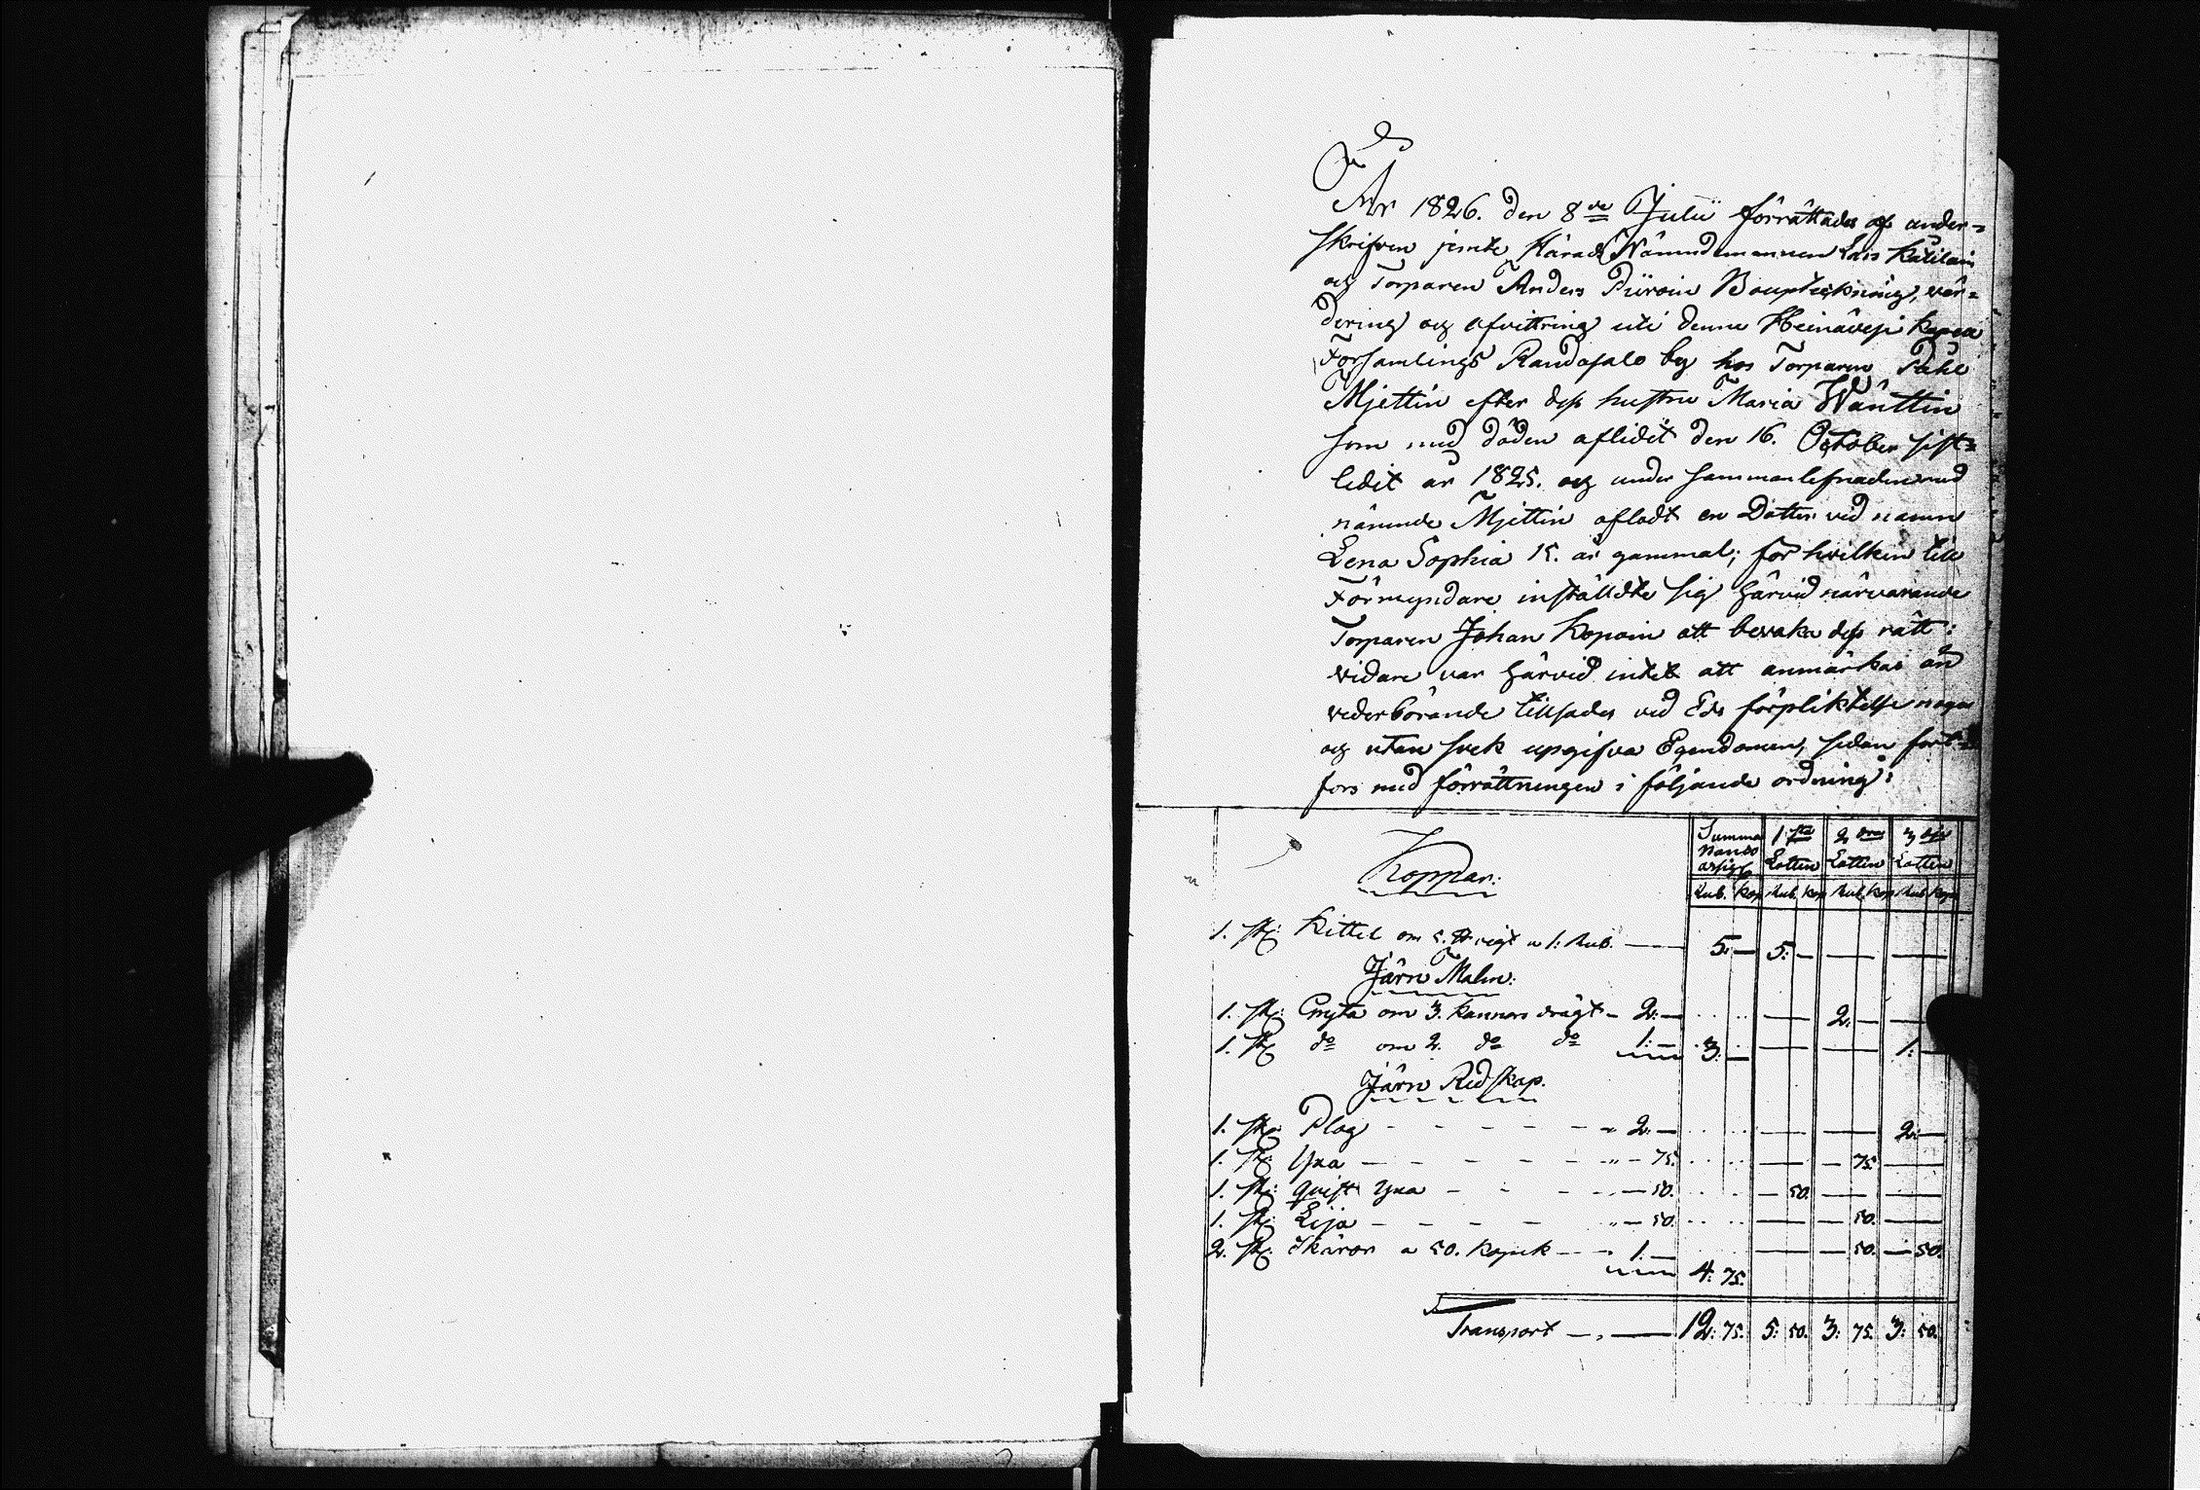 År 1826. den 8de Julii förrättades af under=
skrifven jemte Härads Nämndemannen Lars Kätilain
och Torparen Anders Püroin Bouptekning, vär=
dering och afvittring uti denna Heinävesi kapell
Församlings Randasalo by hos Torparen Påhl
Mjettin efter dess hustru Maria Wänttin
som med döden aflidit den 16. October sist=
ledit år 1825. och under sammanlefnaden med
nämnde Mjettin afladt en Dotter vid namn
Lena Sophia 15. år gammal; för hvilken till
Förmyndare inställdte sig härvid närvarande
Torparen Johan Kopoin att bevaka dess rätt:
vidare var härvid intet att anmärkas än
vederbörande tillsades vid Eds förpliktelse noga
och utan svek upgifva Egendomen, sedan fort=
fors med förrättningen i följande ordning:
Summa 1sta 2dra 3dje
Banco assigt Lotten Lotten Lotten
Koppar: Rub. Kop Rub. Kop Rub. Kop Rub. Kop
1. st: Kittel om 5. ℔ vigt a 1: Rub. — 5: — 5: — — —
Järn Malm:
1. st: Gryta om 3. kannors drägt — 2: — — 2: — —
1. st: do om 2. do do 1: — 3: — — — 1: —
Järn Redskap.
1. st: Plog - - - - - 2: — — — 2: —
1. st: Yxa - - - - - — 75. — — 75. —
1. st: qvist Yxa - - - — 50. — 50. — —
1. st: Lija - - - - — 50. — — 50. —
2. st: Skäror a 50. Kopek - - 1: — — — 50. — 50.
4: 75.
Transport — 12: 75. 5: 50. 3: 75. 3: 50.